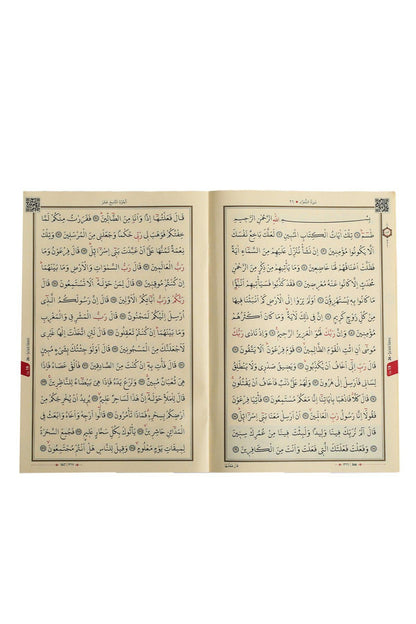 سُورَةُ الشُّعَرَاءِ ٢٦
بِسْمِ اللهِ الرَّحْمٰنِ الرَّحِيمِ
طٰسٓمٓ ۝ تِلْكَ اٰيَاتُ الْكِتَابِ الْمُبِينِ ۝ لَعَلَّكَ بَاخِعٌ نَفْسَكَ
اَلَّا يَكُونُوا مُؤْمِنِينَ ۝ اِنْ نَشَأْ نُنَزِّلْ عَلَيْهِمْ مِنَ السَّمَاءِ اٰيَةً
فَظَلَّتْ اَعْنَاقُهُمْ لَهَا خَاضِعِينَ ۝ وَمَا يَأْتِيهِمْ مِنْ ذِكْرٍ مِنَ الرَّحْمٰنِ
مُحْدَثٍ اِلَّا كَانُوا عَنْهُ مُعْرِضِينَ ۝ فَقَدْ كَذَّبُوا فَسَيَأْتِيهِمْ اَنْبٰٓؤُا
مَا كَانُوا بِهِ يَسْتَهْزِؤُنَ ۝ اَوَلَمْ يَرَوْا اِلَى الْاَرْضِ كَمْ اَنْبَتْنَا فِيهَا
مِنْ كُلِّ زَوْجٍ كَرِيمٍ ۝ اِنَّ فِي ذٰلِكَ لَاٰيَةً وَمَا كَانَ اَكْثَرُهُمْ
مُؤْمِنِينَ ۝ وَاِنَّ رَبَّكَ لَهُوَ الْعَزِيزُ الرَّحِيمُ ۝ وَاِذْ نَادٰى رَبُّكَ
مُوسٰى اَنِ ائْتِ الْقَوْمَ الظَّالِمِينَ ۝ قَوْمَ فِرْعَوْنَ اَلَا يَتَّقُونَ
قَالَ رَبِّ اِنِّي اَخَافُ اَنْ يُكَذِّبُونِ ۝ وَيَضِيقُ صَدْرِي وَلَا يَنْطَلِقُ
لِسَانِي فَاَرْسِلْ اِلٰى هٰرُونَ ۝ وَلَهُمْ عَلَيَّ ذَنْبٌ فَاَخَافُ اَنْ يَقْتُلُونِ
قَالَ كَلَّا فَاذْهَبَا بِاٰيَاتِنَا اِنَّا مَعَكُمْ مُسْتَمِعُونَ ۝ فَأْتِيَا فِرْعَوْنَ
فَقُولَا اِنَّا رَسُولُ رَبِّ الْعَالَمِينَ ۝ اَنْ اَرْسِلْ مَعَنَا بَنِي اِسْرَائِيلَ
قَالَ اَلَمْ نُرَبِّكَ فِينَا وَلِيدًا وَلَبِثْتَ فِينَا مِنْ عُمُرِكَ سِنِينَ
وَفَعَلْتَ فَعْلَتَكَ الَّتِي فَعَلْتَ وَاَنْتَ مِنَ الْكَافِرِينَ
اَلْجُزْءُ التَّاسِعَ عَشَرَ
قَالَ فَعَلْتُهَا اِذًا وَاَنَا مِنَ الضَّالِّينَ ۝ فَفَرَرْتُ مِنْكُمْ لَمَّا
خِفْتُكُمْ فَوَهَبَ لِي رَبِّي حُكْمًا وَجَعَلَنِي مِنَ الْمُرْسَلِينَ ۝ وَتِلْكَ
نِعْمَةٌ تَمُنُّهَا عَلَيَّ اَنْ عَبَّدْتَ بَنِي اِسْرَائِيلَ ۝ قَالَ فِرْعَوْنُ وَمَا
رَبُّ الْعَالَمِينَ ۝ قَالَ رَبُّ السَّمٰوَاتِ وَالْاَرْضِ وَمَا بَيْنَهُمَا
اِنْ كُنْتُمْ مُوقِنِينَ ۝ قَالَ لِمَنْ حَوْلَهُ اَلَا تَسْتَمِعُونَ ۝ قَالَ
رَبُّكُمْ وَرَبُّ اٰبَائِكُمُ الْاَوَّلِينَ ۝ قَالَ اِنَّ رَسُولَكُمُ الَّذِي
اُرْسِلَ اِلَيْكُمْ لَمَجْنُونٌ ۝ قَالَ رَبُّ الْمَشْرِقِ وَالْمَغْرِبِ
وَمَا بَيْنَهُمَا اِنْ كُنْتُمْ تَعْقِلُونَ ۝ قَالَ لَئِنِ اتَّخَذْتَ اِلٰهًا غَيْرِي
لَاَجْعَلَنَّكَ مِنَ الْمَسْجُونِينَ ۝ قَالَ اَوَلَوْ جِئْتُكَ بِشَيْءٍ مُبِينٍ
قَالَ فَأْتِ بِهِ اِنْ كُنْتَ مِنَ الصَّادِقِينَ ۝ فَاَلْقٰى عَصَاهُ فَاِذَا
هِيَ ثُعْبَانٌ مُبِينٌ ۝ وَنَزَعَ يَدَهُ فَاِذَا هِيَ بَيْضَاءُ لِلنَّاظِرِينَ
قَالَ لِلْمَلَاِ حَوْلَهُ اِنَّ هٰذَا لَسَاحِرٌ عَلِيمٌ ۝ يُرِيدُ اَنْ يُخْرِجَكُمْ مِنْ
اَرْضِكُمْ بِسِحْرِهِ فَمَاذَا تَأْمُرُونَ ۝ قَالُوا اَرْجِهْ وَاَخَاهُ وَابْعَثْ فِي
الْمَدَائِنِ حَاشِرِينَ ۝ يَأْتُوكَ بِكُلِّ سَحَّارٍ عَلِيمٍ ۝ فَجُمِعَ السَّحَرَةُ
لِمِيقَاتِ يَوْمٍ مَعْلُومٍ ۝ وَقِيلَ لِلنَّاسِ هَلْ اَنْتُمْ مُجْتَمِعُونَ